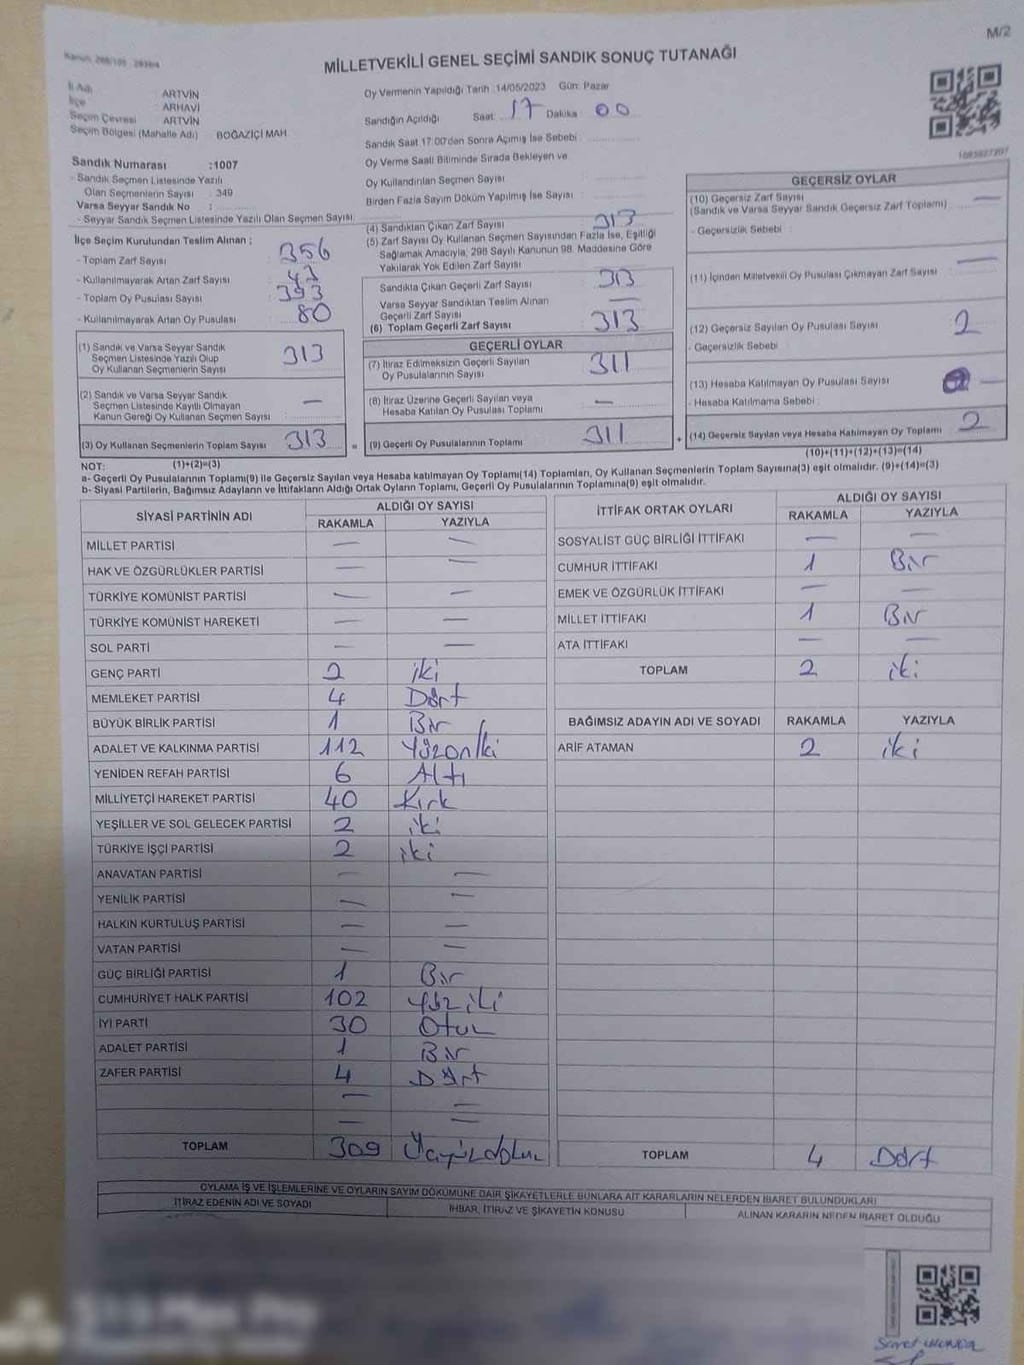 M/2
MİLLETVEKİLİ GENEL SEÇİMİ SANDIK SONUÇ TUTANAĞI
İl Adı : ARTVİN
İlçe : ARHAVİ
Seçim Çevresi : ARTVİN
Seçim Bölgesi (Mahalle Adı) : BOĞAZİÇİ MAH.
Oy Vermenin Yapıldığı Tarih :14/05/2023 Gün: Pazar
Sandığın Açıldığı Saat: 17 Dakika 00
Sandık Saat 17:00'den Sonra Açımış İse Sebebi :
Oy Verme Saati Bitiminde Sırada Bekleyen ve
Oy Kullandırılan Seçmen Sayısı :
Birden Fazla Sayım Döküm Yapılmış İse Sayısı :
Sandık Numarası :1007
- Sandık Seçmen Listesinde Yazılı
Olan Seçmenlerin Sayısı : 349
Varsa Seyyar Sandık No :
- Seyyar Sandık Seçmen Listesinde Yazılı Olan Seçmen Sayısı:
İlçe Seçim Kurulundan Teslim Alınan ;
- Toplam Zarf Sayısı : 356
- Kullanılmayarak Artan Zarf Sayısı : 43
- Toplam Oy Pusulası Sayısı : 393
- Kullanılmayarak Artan Oy Pusulası : 80
(1) Sandık ve Varsa Seyyar Sandık
Seçmen Listesinde Yazılı Olup
Oy Kullanan Seçmenlerin Sayısı : 313
(2) Sandık ve Varsa Seyyar Sandık
Seçmen Listesinde Kayıtlı Olmayan
Kanun Gereği Oy Kullanan Seçmen Sayısı : —
(3) Oy Kullanan Seçmenlerin Toplam Sayısı : 313
(4) Sandıktan Çıkan Zarf Sayısı : 313
(5) Zarf Sayısı Oy Kullanan Seçmen Sayısından Fazla İse, Eşitliği
Sağlamak Amacıyla, 298 Sayılı Kanunun 98. Maddesine Göre
Yakılarak Yok Edilen Zarf Sayısı
Sandıkta Çıkan Geçerli Zarf Sayısı : 313
Varsa Seyyar Sandıktan Teslim Alınan
Geçerli Zarf Sayısı : —
(6) Toplam Geçerli Zarf Sayısı : 313
GEÇERLİ OYLAR
(7) İtiraz Edilmeksizin Geçerli Sayılan
Oy Pusulalarının Sayısı : 311
(8) İtiraz Üzerine Geçerli Sayılan veya
Hesaba Katılan Oy Pusulası Toplamı : —
= (9) Geçerli Oy Pusulalarının Toplamı : 311
GEÇERSİZ OYLAR
(10) Geçersiz Zarf Sayısı
(Sandık ve Varsa Seyyar Sandık Geçersiz Zarf Toplamı) : —
- Geçersizlik Sebebi :
(11) İçinden Milletvekili Oy Pusulası Çıkmayan Zarf Sayısı : —
(12) Geçersiz Sayılan Oy Pusulası Sayısı : 2
- Geçersizlik Sebebi :
(13) Hesaba Katılmayan Oy Pusulası Sayısı : —
- Hesaba Katılmama Sebebi :
+ (14) Geçersiz Sayılan veya Hesaba Katılmayan Oy Toplamı : 2
NOT: (1)+(2)=(3)
(10)+(11)+(12)+(13)=(14)
a- Geçerli Oy Pusulalarının Toplamı(9) ile Geçersiz Sayılan veya Hesaba katılmayan Oy Toplamı(14) Toplamları, Oy Kullanan Seçmenlerin Toplam Sayısına(3) eşit olmalıdır. (9)+(14)=(3)
b- Siyasi Partilerin, Bağımsız Adayların ve İttifakların Aldığı Ortak Oyların Toplamı, Geçerli Oy Pusulalarının Toplamına(9) eşit olmalıdır.
SİYASİ PARTİNİN ADI ALDIĞI OY SAYISI
RAKAMLA YAZIYLA
MİLLET PARTİSİ — —
HAK VE ÖZGÜRLÜKLER PARTİSİ — —
TÜRKİYE KOMÜNİST PARTİSİ — —
TÜRKİYE KOMÜNİST HAREKETİ — —
SOL PARTİ — —
GENÇ PARTİ 2 iki
MEMLEKET PARTİSİ 4 Dört
BÜYÜK BİRLİK PARTİSİ 1 Bir
ADALET VE KALKINMA PARTİSİ 112 Yüzoniki
YENİDEN REFAH PARTİSİ 6 Altı
MİLLİYETÇİ HAREKET PARTİSİ 40 Kırk
YEŞİLLER VE SOL GELECEK PARTİSİ 2 iki
TÜRKİYE İŞÇİ PARTİSİ 2 iki
ANAVATAN PARTİSİ — —
YENİLİK PARTİSİ — —
HALKIN KURTULUŞ PARTİSİ — —
VATAN PARTİSİ — —
GÜÇ BİRLİĞİ PARTİSİ 1 Bir
CUMHURİYET HALK PARTİSİ 102 Yüz iki
İYİ PARTİ 30 Otuz
ADALET PARTİSİ 1 Bir
ZAFER PARTİSİ 4 Dört
— —
— —
TOPLAM 309 Üçyüzdokuz
İTTİFAK ORTAK OYLARI ALDIĞI OY SAYISI
RAKAMLA YAZIYLA
SOSYALİST GÜÇ BİRLİĞİ İTTİFAKI — —
CUMHUR İTTİFAKI 1 Bir
EMEK VE ÖZGÜRLÜK İTTİFAKI — —
MİLLET İTTİFAKI 1 Bir
ATA İTTİFAKI — —
TOPLAM 2 iki
BAĞIMSIZ ADAYIN ADI VE SOYADI RAKAMLA YAZIYLA
ARİF ATAMAN 2 iki
TOPLAM 4 Dört
OYLAMA İŞ VE İŞLEMLERİNE VE OYLARIN SAYIM DÖKÜMÜNE DAİR ŞİKAYETLERLE BUNLARA AİT KARARLARIN NELERDEN İBARET BULUNDUKLARI
İTİRAZ EDENİN ADI VE SOYADI İHBAR, İTİRAZ VE ŞİKAYETİN KONUSU ALINAN KARARIN NEDEN İBARET OLDUĞU